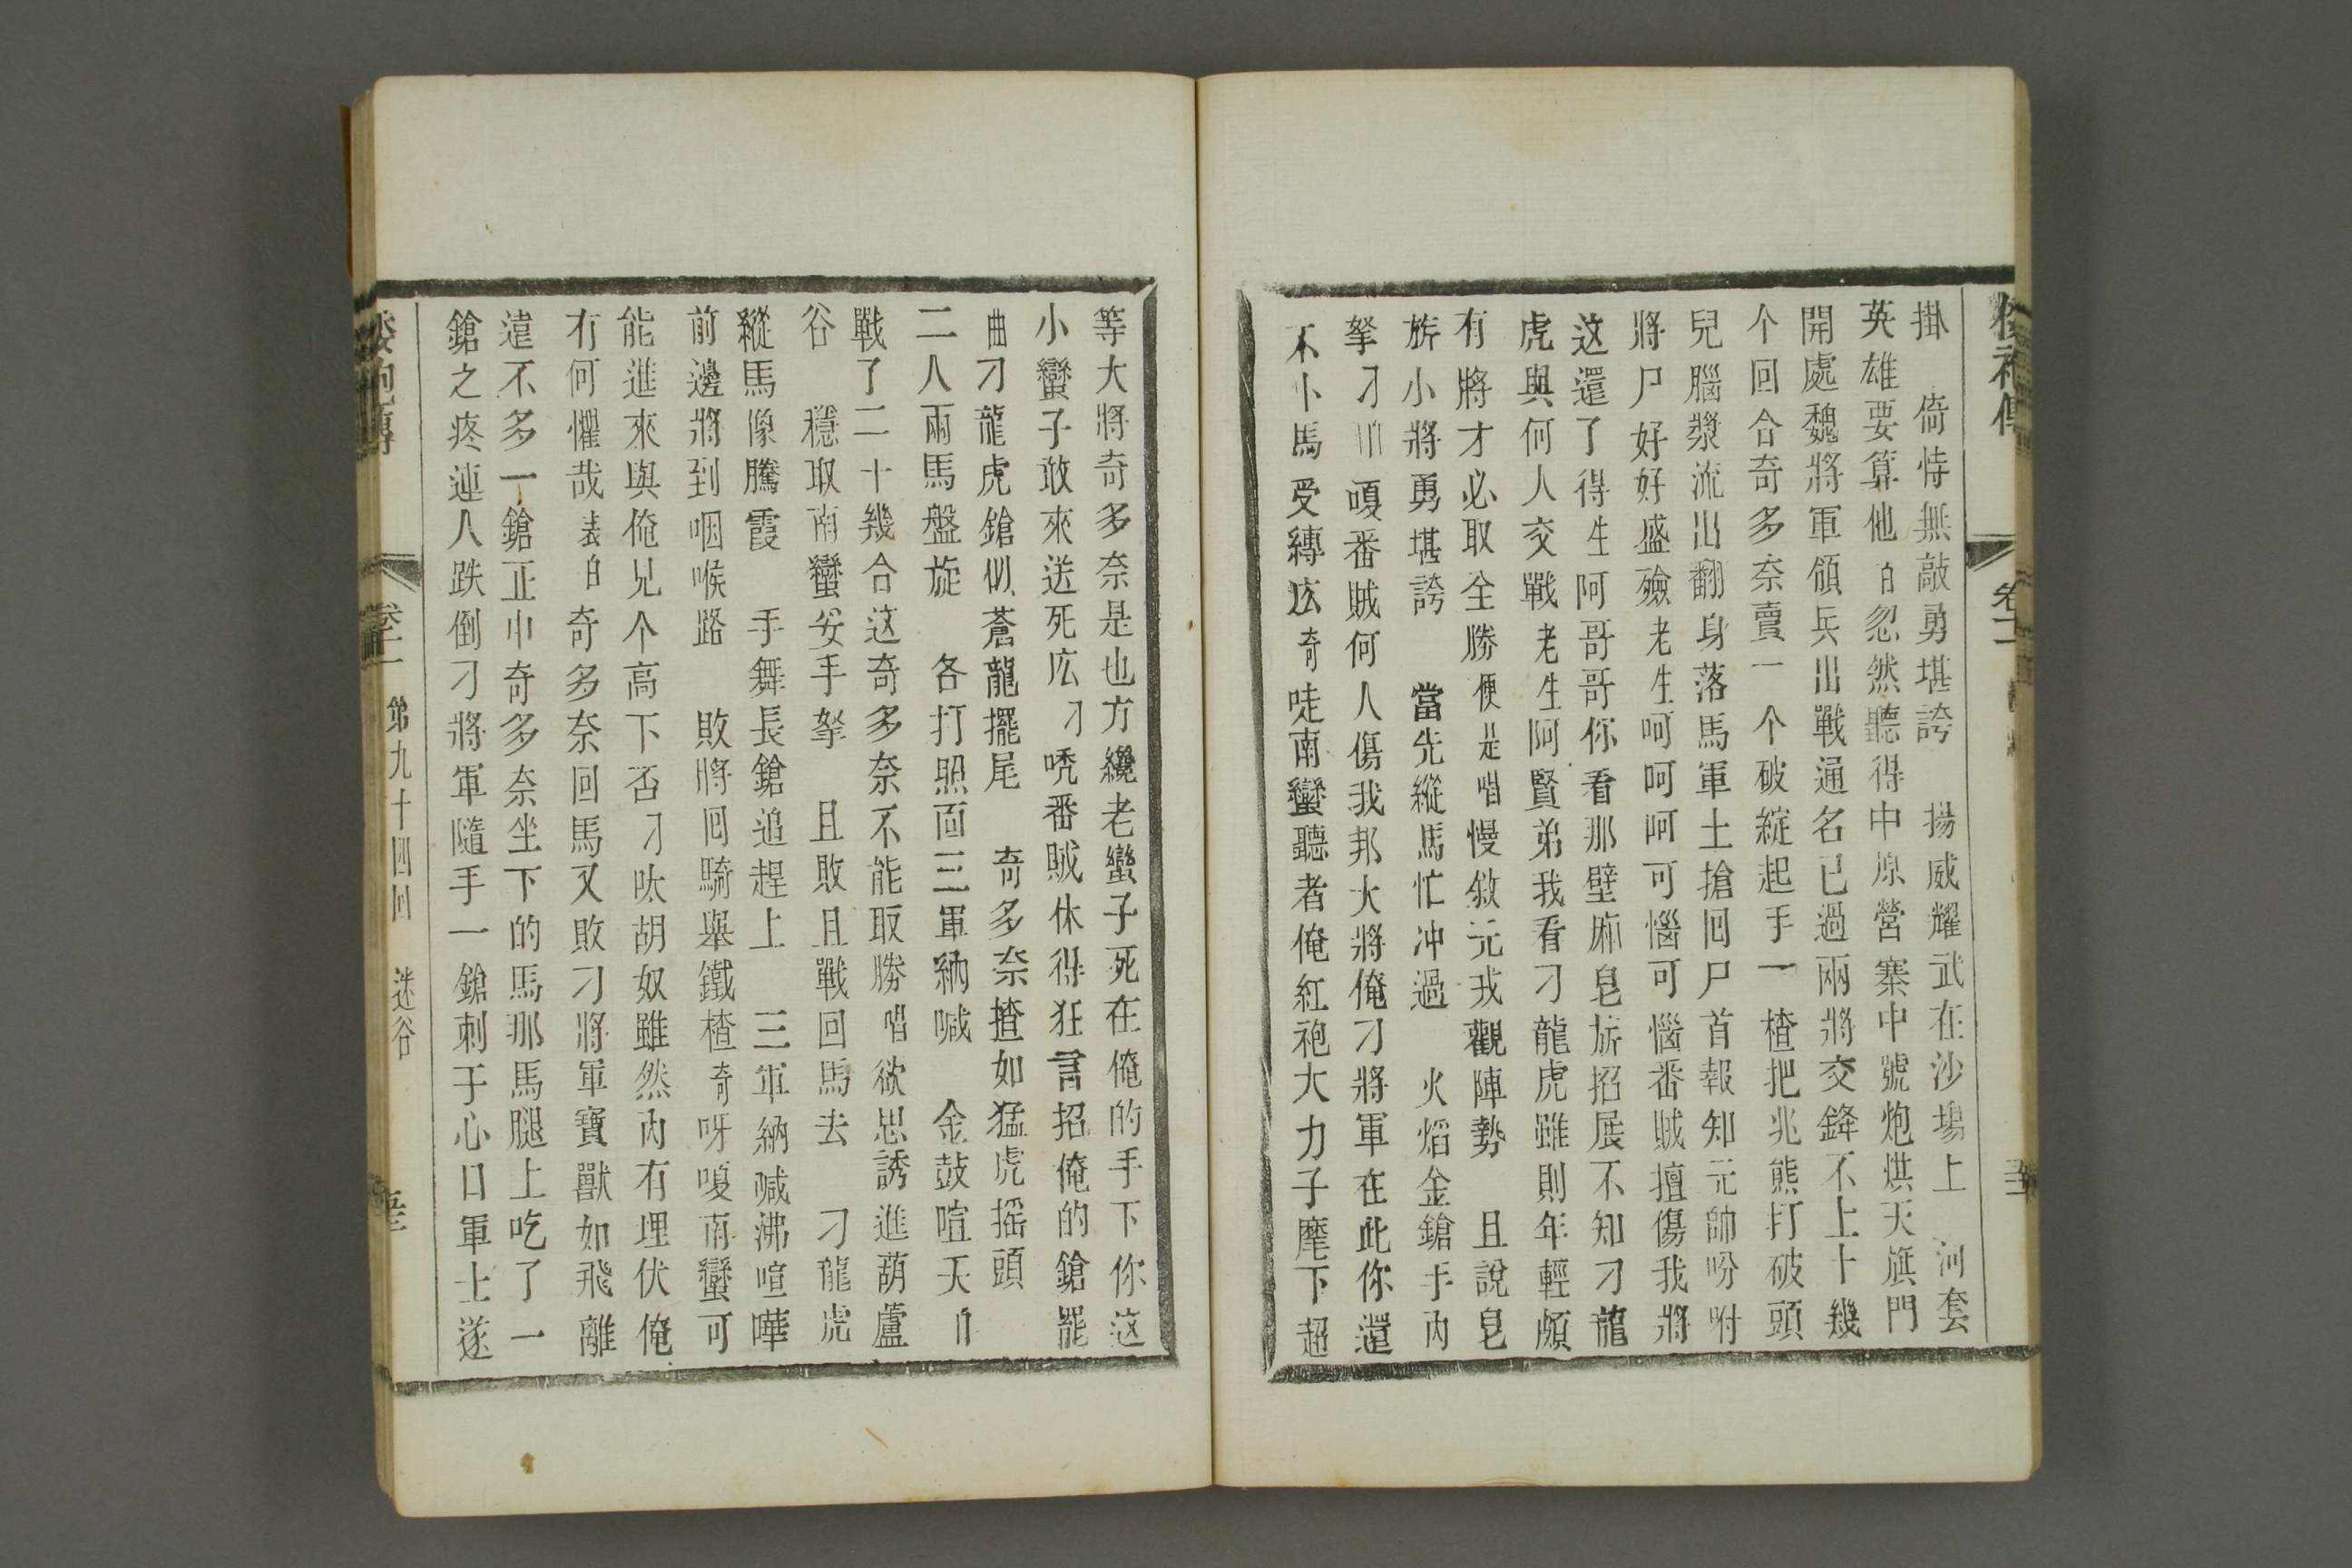 掛　倚恃無敵勇堪誇　揚威耀武在沙塲上　河套
英雄要算他白忽然聽得中原營寨中號炮烘天旗門
開處魏將軍領兵出戰通名已過兩將交鋒不上十幾
个回合奇多奈賣一个破綻起手一楂把兆熊打破頭
兒腦漿流出翻身落馬軍士搶囘尸首報知元帥吩咐
將尸好好盛殮老生呵呵呵可惱可惱番賊擅傷我將
这還了得生阿哥哥你看那壁廂皂旂招展不知刁龍
虎與何人交戰老生阿賢弟我看刁龍虎雖則年輕頗
有將才必取全勝便是唱慢敘元戎觀陣勢　且說皂
旂小將勇堪誇　當先縱馬忙冲過　火焰金鎗手內
拏刁嗄番賊何人傷我邦大將俺刁將軍在此你還
不下馬受縛広奇哇南蠻聽者俺紅袍大力子麾下超
等大將奇多奈是也方纔老蠻子死在俺的手下你这
小蠻子敢來送死広刁唗番賊休得狂言招俺的鎗罷
曲刁龍虎鎗似蒼龍擺尾　奇多奈揸如猛虎摇頭
二人兩馬盤旋　各打照面三軍納喊　金鼓喧天白
戰了二十幾合这奇多奈不能取勝唱欲思誘進葫蘆
谷　穩取南蠻妥手拏　且敗且戰回馬去　刁龍虎
縱馬像騰霞　手舞長鎗追趕上　三軍納喊沸喧嘩
前邊將到咽喉路　敗將囘騎舉鐵楂奇呀嗄南蠻可
能進來與俺見个高下否刁呔胡奴雖然內有埋伏俺
有何懼哉表白奇多奈回馬又敗刁將軍寶獸如飛離
遠不多一鎗正中奇多奈坐下的馬那馬腿上吃了一
鎗之疼連人跌倒刁將軍隨手一鎗刺于心口軍士遂
卷十一　第九十四回　迷谷